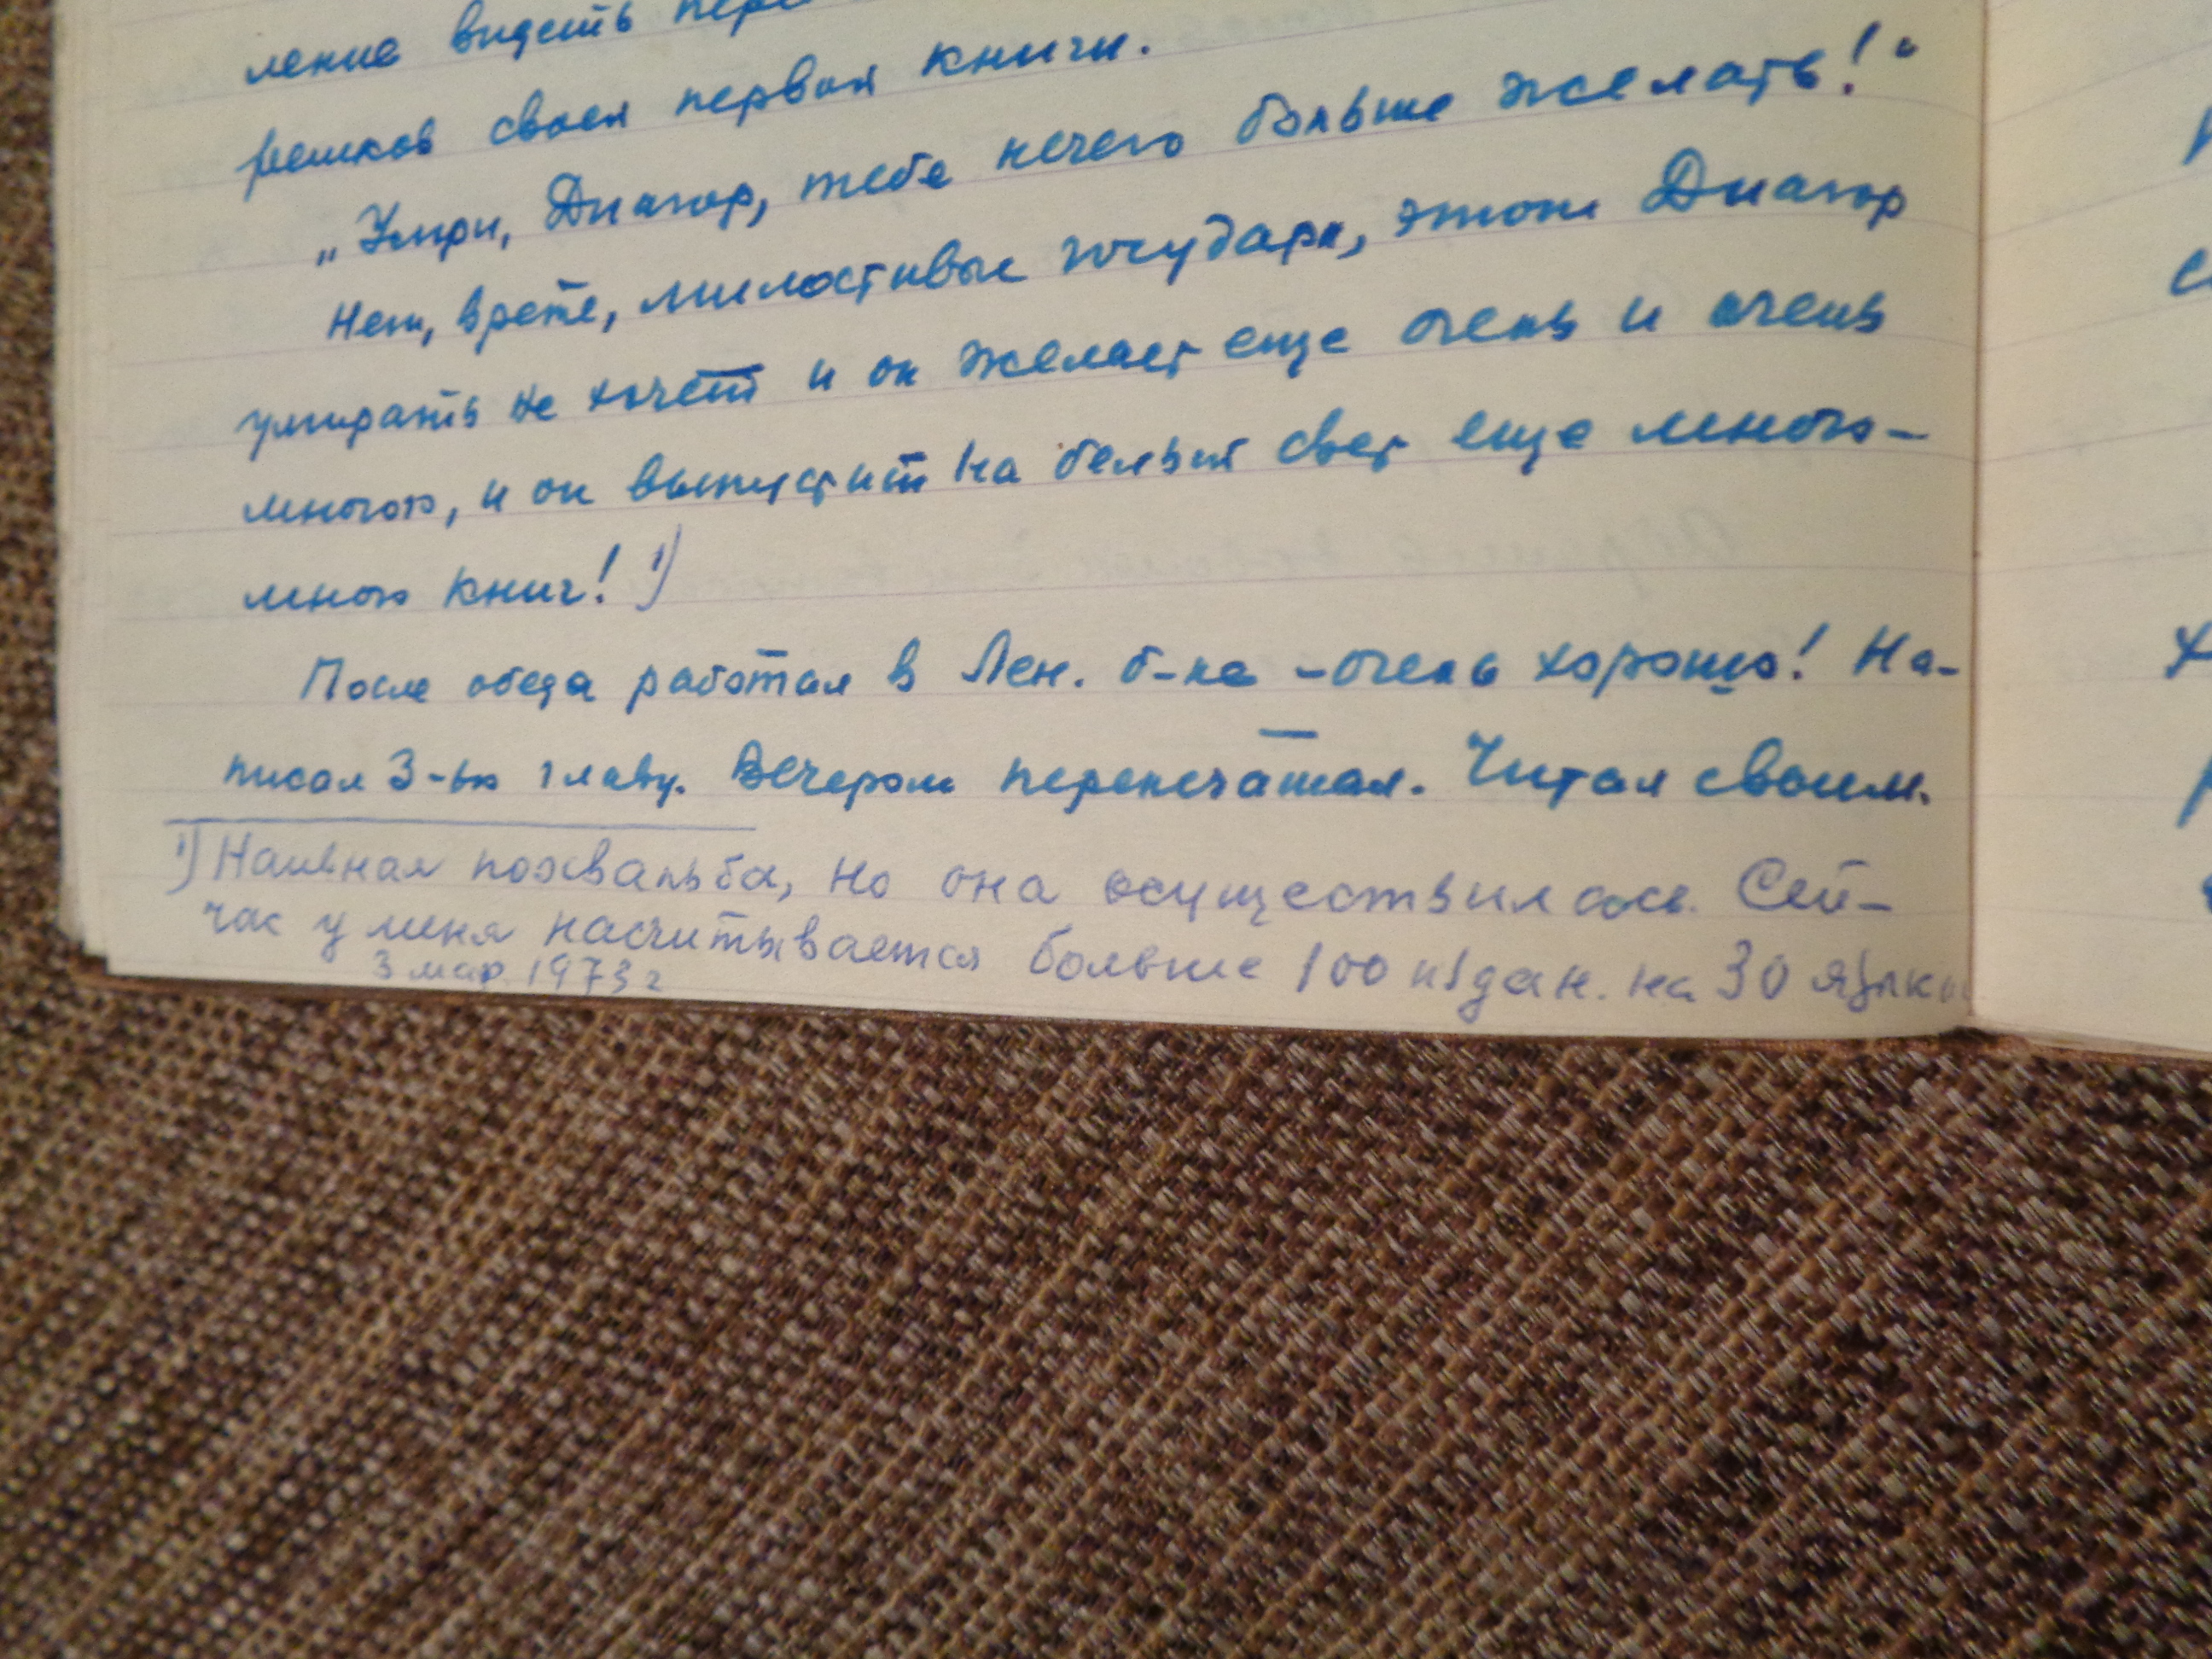 ление видеть
решков своей первой книги.
„Умри, Диагор, тебе нечего больше желать!“
Нет, врете, милостивые государи, этот Диагор
умирать не хочет и он желает еще очень и очень
много, и он выпустит на белый свет еще много-
много книг! 1)
После обеда работал в Лен. б-ке – очень хорошо! На-
писал 3-ью главу. Вечером перепечатал. Читал своим.
1) Наивная похвальба, но она осуществилась. Сей-
час у меня насчитывается больше 100 издан. на 30 языках
3 мар. 1973 г